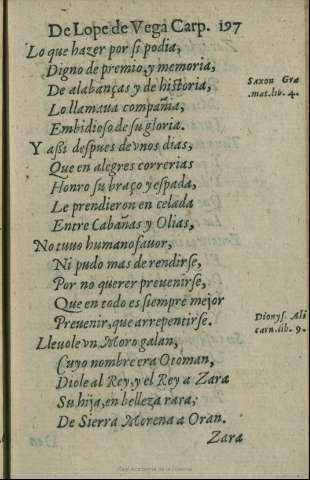 De Lope de Vega Carp. 197
Lo que hazer por si podia,
Digno de premio, y memoria,
De alabanças y de historia,
Saxon Gra
.mat.lib. 4.
Lo llamaua compañia,
Embidioso de su gloria.
Y assi despues de vnos dias,
Que en alegres correrias
Honro su braço y espada,
Le prendieron en celada
Entre Cabañas y Olias,
No tuuo humano fauor,
Ni pudo mas de rendirse,
Por no querer preuenirse,
Que en todo es siempre mejor
Preuenir, que arrepentirse.
Dionys. Ali
carn.lib. 9.
Lleuole vn Moro galan,
Cuyo nombre era Otoman,
Diole al Rey, y el Rey a Zara
Su hija, en belleza rara,
De Sierra Morena a Oran.
Zara
Real Academia de la Historia